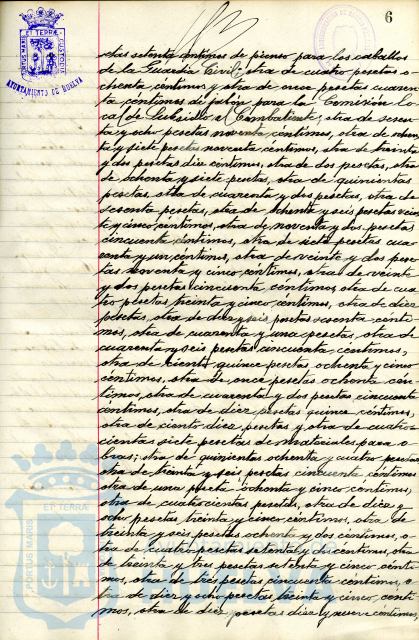 6
PORTUS MARIS ET TERRÆ CUSTODIA
AYUNTAMIENTO DE HUELVA
setenta céntimos de pienso para los caballos
de la Guardia Civil; otra de cuatro pesetas o
chenta céntimos y otra de once pesetas cuaren
ta céntimos de jabón para la Comisión lo
cal de Subsidio al Combatiente, otra de sesen
ta y ocho pesetas noventa céntimos, otra de
y siete pesetas noventa céntimos, otra de treinta
y dos pesetas diez céntimos, otra de dos pesetas, otra
de ochenta y siete pesetas, otra de quinientas
pesetas, otra de cuarenta y dos pesetas, otra de
sesenta pesetas, otra de ochenta y seis pesetas vein
te y cinco céntimos, otra de noventa y dos pesetas
cincuenta céntimos, otra de siete pesetas cua
renta y un céntimos, otra de veinte y dos pese
tas noventa y cinco céntimos, otra de veinte
y dos pesetas cincuenta céntimos, otra de cua
tro pesetas treinta y cinco céntimos, otra de diez
pesetas, otra de diez y seis pesetas sesenta cénti
mos, otra de cuarenta y una pesetas, otra de
cuarenta y seis pesetas cincuenta céntimos,
otra de ciento quince pesetas ochenta y cinco
céntimos, otra de once pesetas ochenta cén
timos, otra de cuarenta y dos pesetas cincuenta
céntimos, otra de diez pesetas quince céntimos,
otra de ciento diez pesetas y otra de cuatro
cientas siete pesetas de materiales para o
bras; otra de quinientas ochenta y cuatro pesetas,
otra de treinta y seis pesetas cincuenta céntimos
otra de una peseta ochenta y cinco céntimos,
otra de cuatrocientas pesetas, otra de diez y
ocho pesetas treinta y cinco céntimos, otra de
treinta y seis pesetas ochenta y dos céntimos, o
tra de cuatro pesetas setenta y dos céntimos, otra
de treinta y tres pesetas setenta y cinco cénti
mos, otra de tres pesetas cincuenta céntimos, o
tra de diez y ocho pesetas treinta y cinco cénti
mos, otra de diez pesetas diez y nueve céntimos,
PORTUS MARIS ET TERRÆ